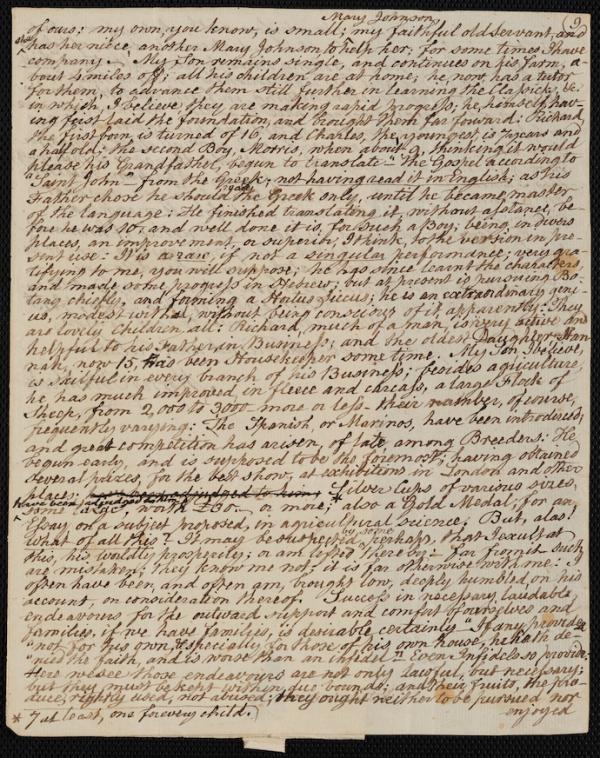 Mary Johnson,
9
of ours: my own, you know, is small; my faithful old servant, and
has her niece, another Mary Johnson, to help her; for some times I have
company. My Son remains single, and continues on his farm, a-
bout 4 miles off; all his children are at home; he now has a tutor
for them, to advance them still further in learning the Classicks, &c.
in which, I believe they are making rapid progress; he himself hav-
ing first laid the foundation, and brought them far forward. Richard,
the first born, is turned of 16, and Charles, the youngest, is 7 years and
a half old; the second Boy, Morris, when about 9, thinking it would
please his Grandfather, begun to translate "The Gospel according to
Saint John" from the Greek; not having read it in English; as his
Father chose he should read the Greek only, until he became master
of the language: He finished translating it, without assistance, be-
fore he was 10, and well done it is, for such a Boy; being in divers
places, an improvement, or superior, I think, to the version in pre-
sent use: It is a rare, if not a singular performance; very gra-
tifying to me, you will suppose; he has since learnt the characters,
and made some progress in Hebrew; but at present is pursuing Bo-
tany chiefly, and forming a Hortus Siccus; he is an extraordinary geni-
us, modest withal, without being conscious of it apparently: They
are lovely Children all: Richard, much of a man, is very active and
helpful to his Father, in Business; and the oldest Daughter Han-
nah, now 15, has been Housekeeper some time. My Son I believe,
is skilful in every branch of his Business; besides agriculture,
he has much improved, in fleece and carcass, a large Flock of
Sheep, from 2,000 to 3000 more or less - their number, of course,
frequently varying: The Spanish, or Marinos, have been introduced;
and great competition has arisen, of late, among Breeders: He
begun early, and is supposed to be the foremost; having obtained
several prizes, for the best show, at exhibitions in London and other
places; * Silver Cups of various sizes,
some large, worth £30 - or more; also a Gold Medal, for an
Essay on a subject proposed, in agricultural science; But, alas!
what of all this? It may be suspected by some, perhaps, that I exult at
this, his worldly prosperity; or am lofted thereby - far from it such
are mistaken; they know me not; it is far otherwise with me: I
often have been, and often am, brought low, deeply humbled, on his
account, on consideration thereof. Success in necessary, laudable
endeavours, for the outward support and comfort of ourselves and
families, if we have families, is desirable certainly "If any provide
"not for his own, & especially for those of his own house, he hath de-
"nied the faith, and is worse than an infidel" Even Infidels so provide.
Here we see those endeavours are not only lawful, but necessary;
but they must be kept within due bounds; and their fruits, the pro-
duce, rightly used, not abused; they ought neither to be pursued nor
enjoyed
* 7 at least, one for every child.